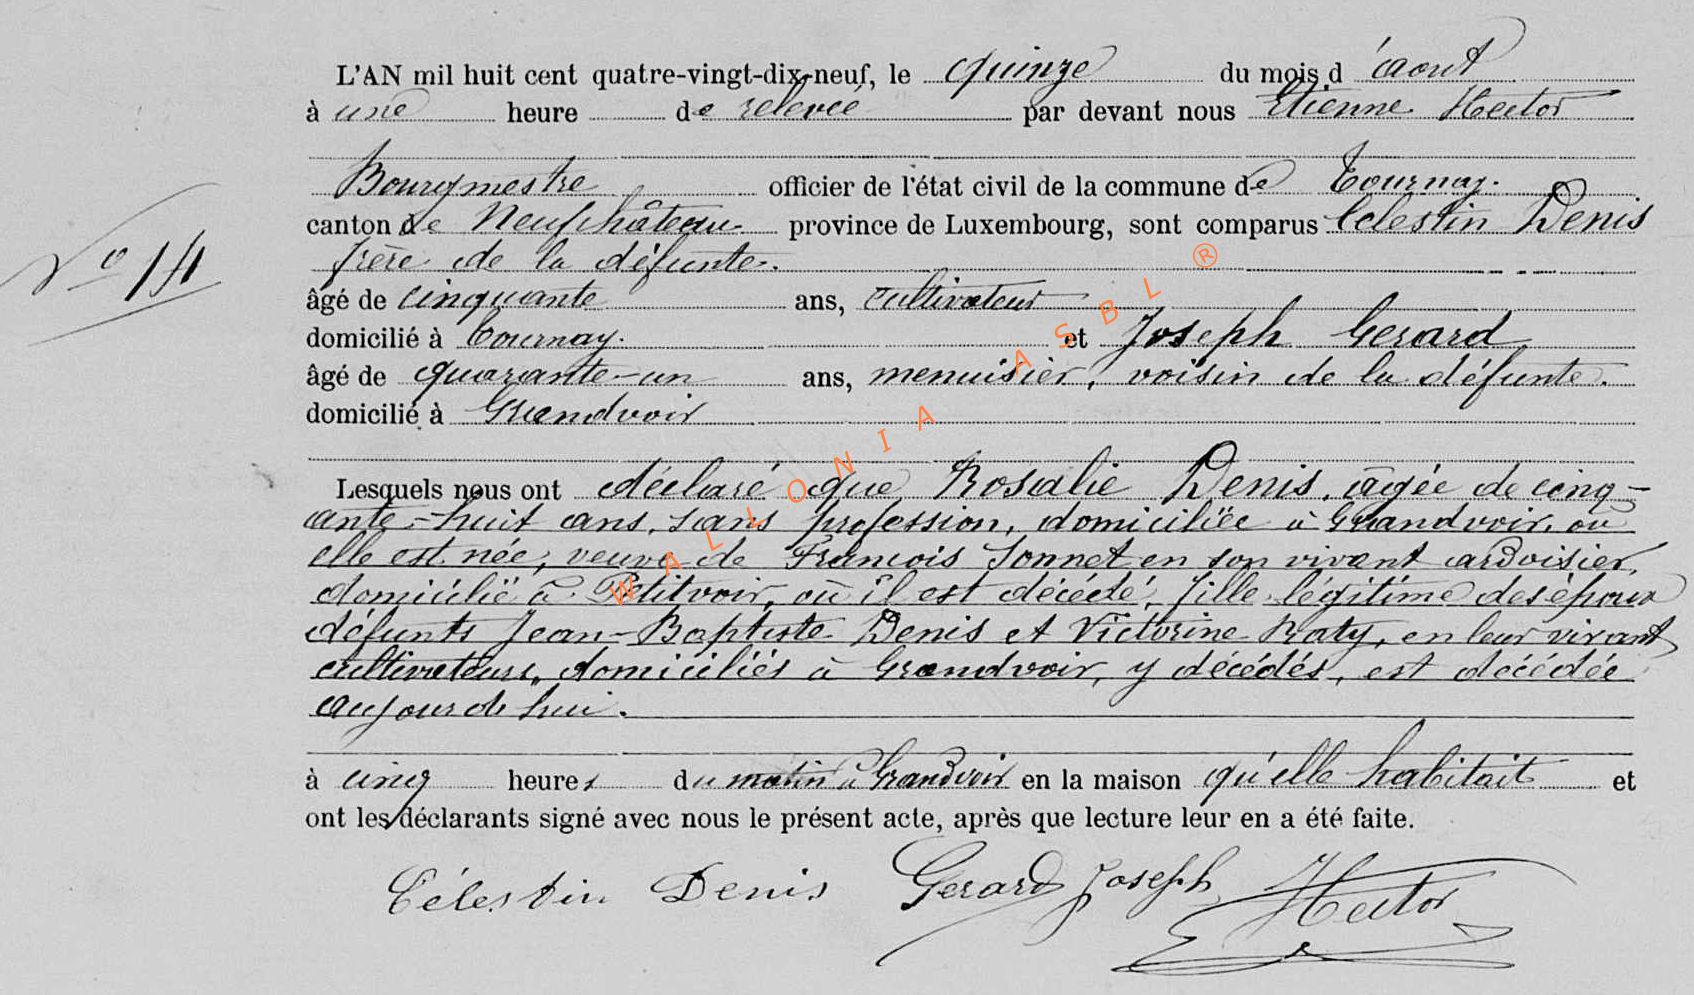 L'AN mil huit cent quatre-vingt-dix-neuf, le quinze du mois d'aout
à une heure de relevée par devant nous Etienne Hector
Bourgmestre officier de l'état civil de la commune de Tournay.
canton de Neufchâteau province de Luxembourg, sont comparus Célestin Denis
frère de la défunte.
âgé de cinquante ans, cultivateur
domicilié à Tournay. et Joseph Gerard
âgé de quarante-un ans, menuisier, voisin de la défunte.
N° 14
domicilié à Grandvoir
Lesquels nous ont déclaré que Rosalie Denis, âgée de cinq-
ante-huit ans, sans profession, domiciliée à Grandvoir, où
elle est née, veuve de François Sonnet en son vivant ardoisier,
domicilié à Petitvoir, où il est décédé, fille légitime des époux
défunts Jean-Baptiste Denis et Victorine Raty, en leur vivant
cultivateurs, domiciliés à Grandvoir, y décédés, est décédée
aujourdehui.
à cinq heures du matin à Grandvoir en la maison qu'elle habitait et
ont les déclarants signé avec nous le présent acte, après que lecture leur en a été faite.
Célestin Denis Gerard Joseph Hector
WALLONIA ASBL ®